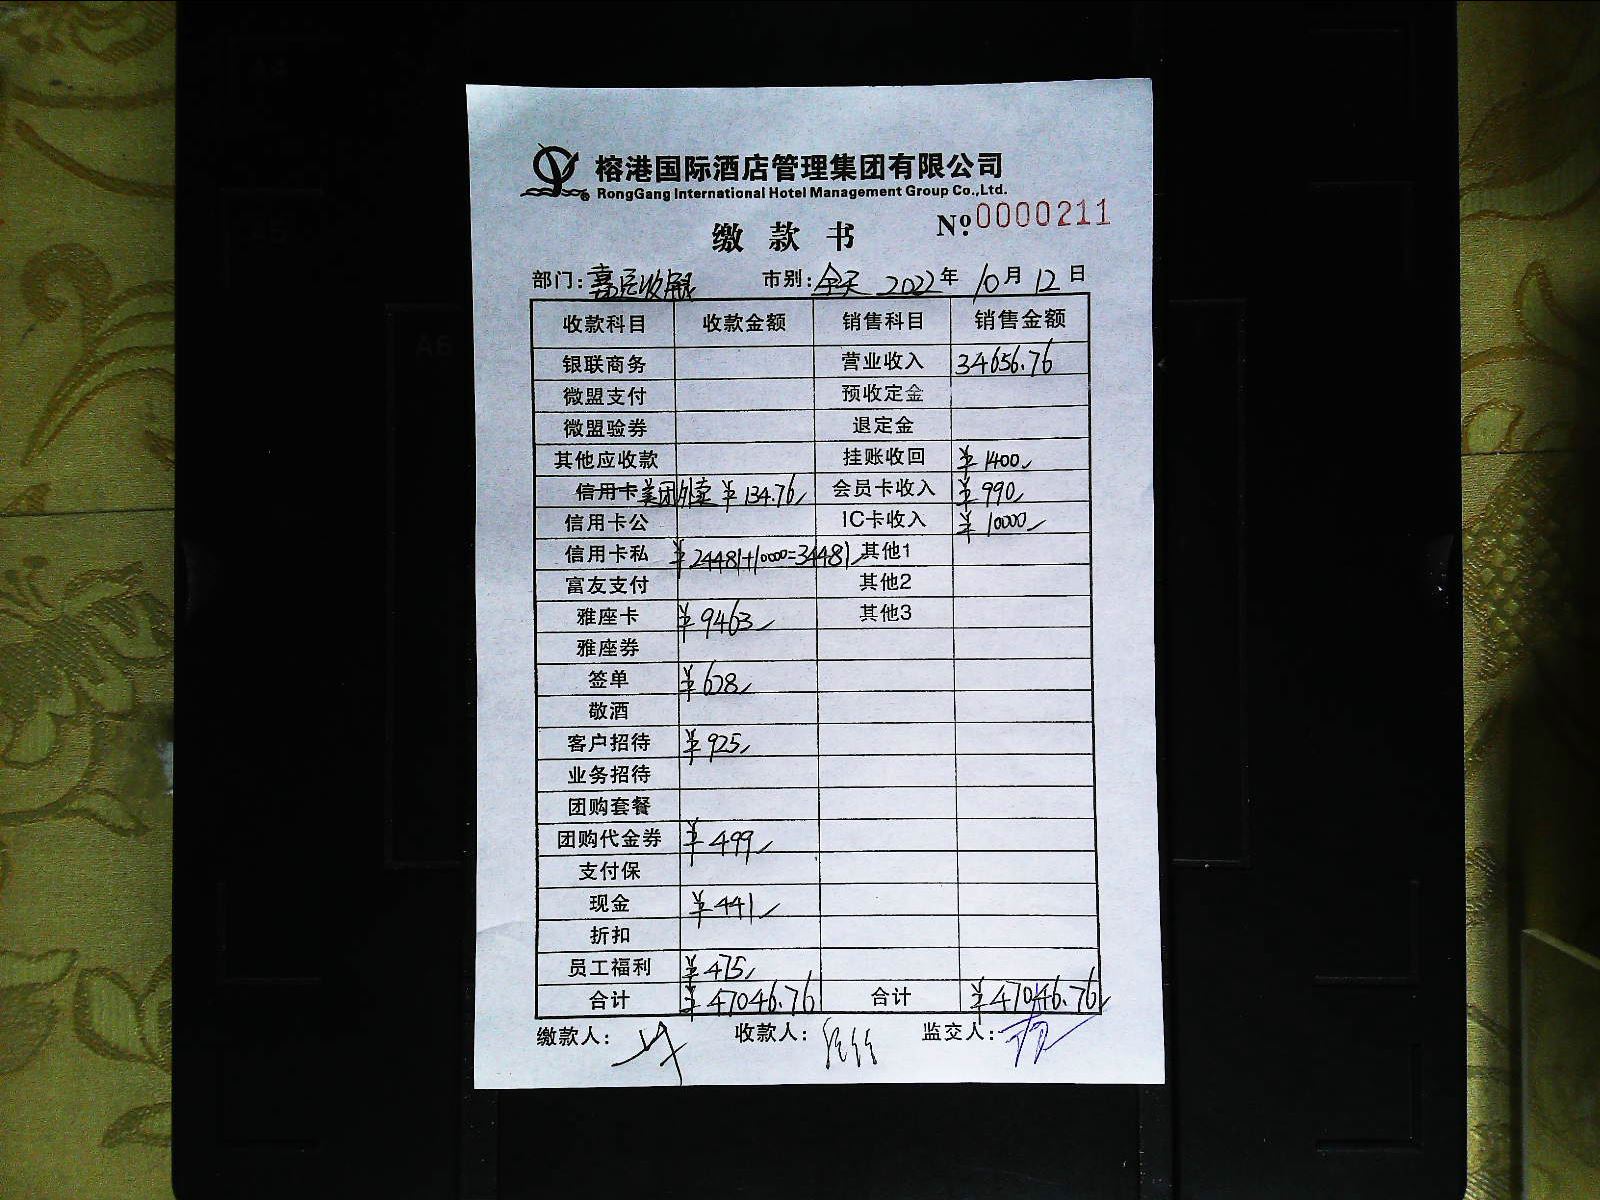 榕港国际酒店管理集团有限公司
RongGang International Hotel Management Group Co.,Ltd.
缴款书 Nº:0000211
部门: 收银 市别:全天 2022年10月12日
收款科目 收款金额 销售科目 销售金额
银联商务 营业收入 34656.76
微盟支付 预收定金
微盟验券 退定金
其他应收款 挂账收回 ¥1400
信用卡 美团外卖 ¥134.76 会员卡收入 ¥990
信用卡公 IC卡收入 ¥10000
信用卡私 ¥24481+10000=34481 其他1
富友支付 其他2
雅座卡 ¥9463 其他3
雅座券
签单 ¥628
敬酒
客户招待 ¥925
业务招待
团购套餐
团购代金券 ¥499
支付保
现金 ¥441
折扣
员工福利 ¥475
合计 ¥47046.76 合计 ¥47046.76
缴款人: 收款人: 监交人: